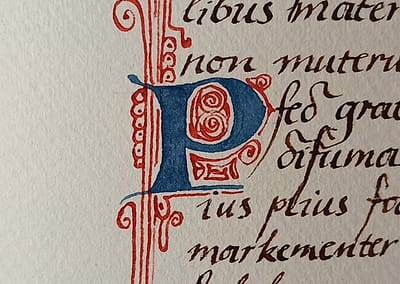 libus mater
non muteru
P
fed grat
difuma
ius plius fo
markementer